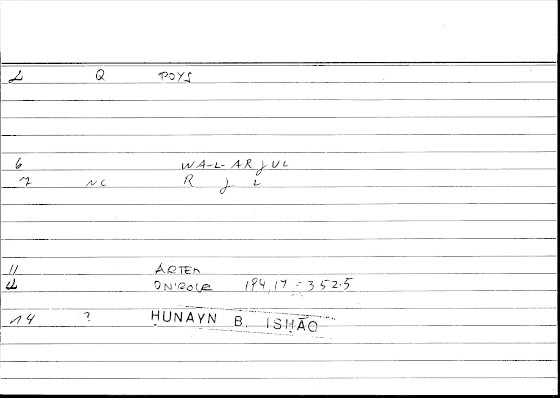 L Q ΠΟΥΣ
6 WA-L-ARJUL
7 NC R J L
11 ARTEM
ONIROCR 194,17 = 352.5
14 ? ḤUNAYN B. ISḤĀQ